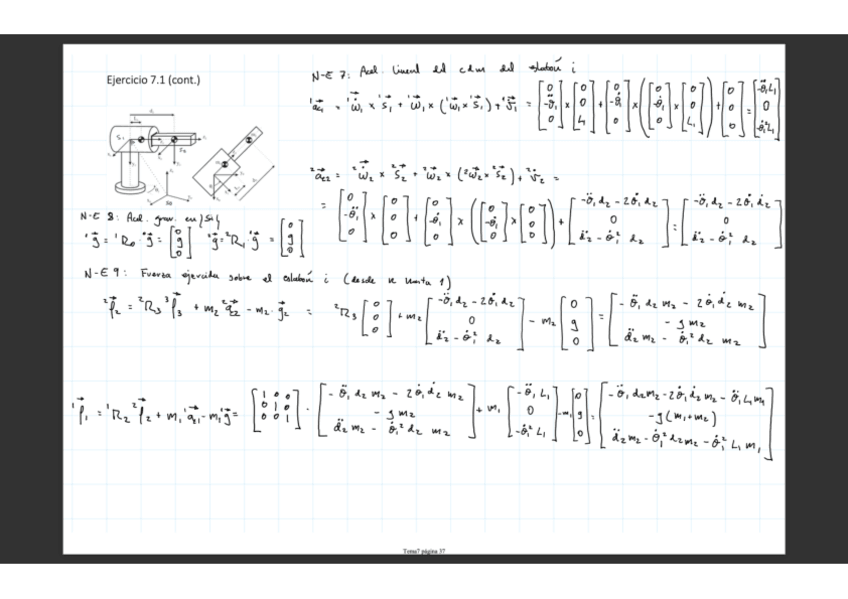 Ejercicio 7.1 (cont.)
N-E 7: Acel. lineal del cdm del eslabón i
¹a⃗c₁ = ¹ω̇₁ × ¹s₁ + ¹ω₁ × (¹ω₁ × ¹s₁) + ¹v̇₁ = [0; -θ̈₁; 0] × [0; 0; L₁] + [0; -θ̇₁; 0] × ([0; -θ̇₁; 0] × [0; 0; L₁]) + [0; 0; 0] = [-θ̈₁L₁; 0; -θ̇₁²L₁]
²a⃗c₂ = ²ω̇₂ × ²s₂ + ²ω₂ × (²ω₂ × ²s₂) + ²v̇₂ =
= [0; -θ̈₁; 0] × [0; 0; 0] + [0; -θ̇₁; 0] × ([0; -θ̇₁; 0] × [0; 0; 0]) + [-θ̈₁d₂ - 2θ̇₁ḋ₂; 0; d̈₂ - θ̇₁²d₂] = [-θ̈₁d₂ - 2θ̇₁ḋ₂; 0; d̈₂ - θ̇₁²d₂]
N-E 8: Acel. grav. en {Si}
¹g⃗ = ¹R₀·⁰g⃗ = [0; g; 0] ²g⃗ = ²R₁·¹g⃗ = [0; g; 0]
N-E 9: Fuerza ejercida sobre el eslabón i (desde n hasta 1)
²f⃗₂ = ²R₃ ³f⃗₃ + m₂ ²a⃗c₂ - m₂·g⃗₂ = ²R₃ [0; 0; 0] + m₂ [-θ̈₁d₂ - 2θ̇₁ḋ₂; 0; d̈₂ - θ̇₁²d₂] - m₂ [0; g; 0] = [-θ̈₁d₂m₂ - 2θ̇₁ḋ₂m₂; -gm₂; d̈₂m₂ - θ̇₁²d₂m₂]
¹f⃗₁ = ¹R₂ ²f⃗₂ + m₁ ¹a⃗c₁ - m₁ ¹g⃗ = [1 0 0; 0 1 0; 0 0 1] · [-θ̈₁d₂m₂ - 2θ̇₁ḋ₂m₂; -gm₂; d̈₂m₂ - θ̇₁²d₂m₂] + m₁ [-θ̈₁L₁; 0; -θ̇₁²L₁] - m₁ [0; g; 0] = [-θ̈₁d₂m₂ - 2θ̇₁ḋ₂m₂ - θ̈₁L₁m₁; -g(m₁+m₂); d̈₂m₂ - θ̇₁²d₂m₂ - θ̇₁²L₁m₁]
Tema7 página 37